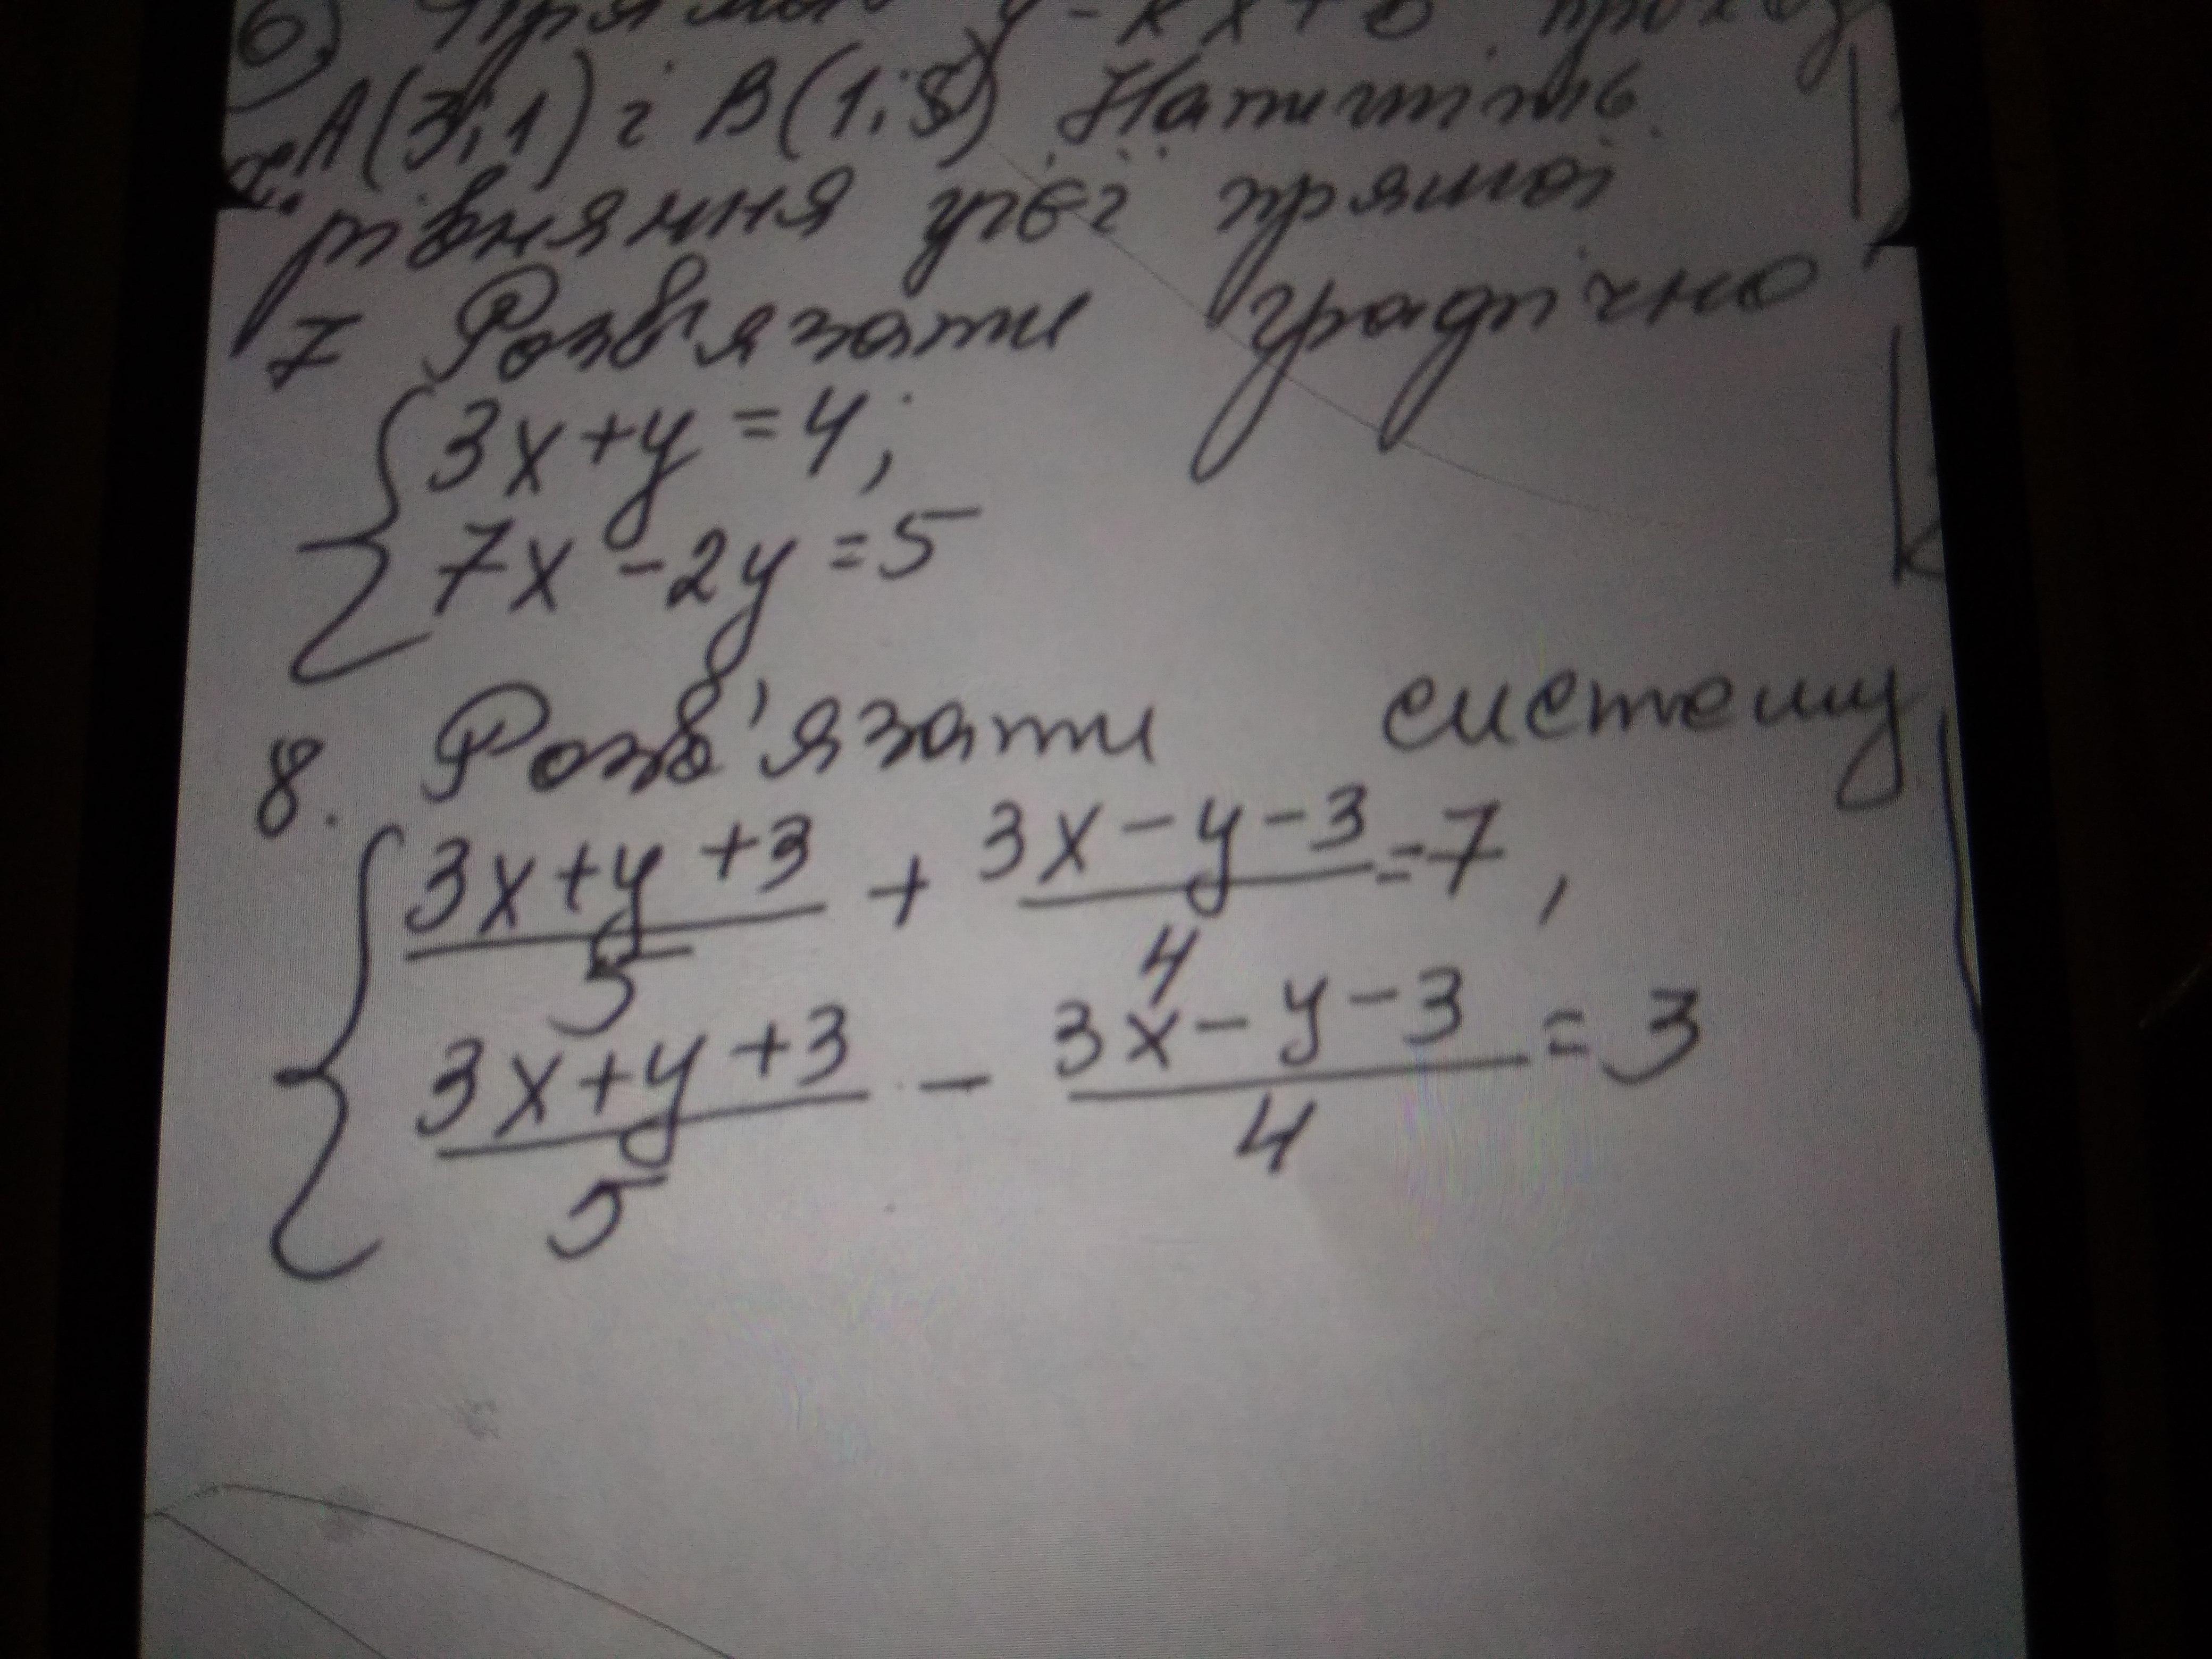 6) Пряма y = kx + b прохо
A(3; 1) і B(1; 8) Напишіть
рівняння цієї прямої
7 Розв'язати графічно
3x + y = 4;
7x - 2y = 5
8. Розв'язати систему
(3x + y + 3)/5 + (3x - y - 3)/4 = 7,
(3x + y + 3)/5 - (3x - y - 3)/4 = 3